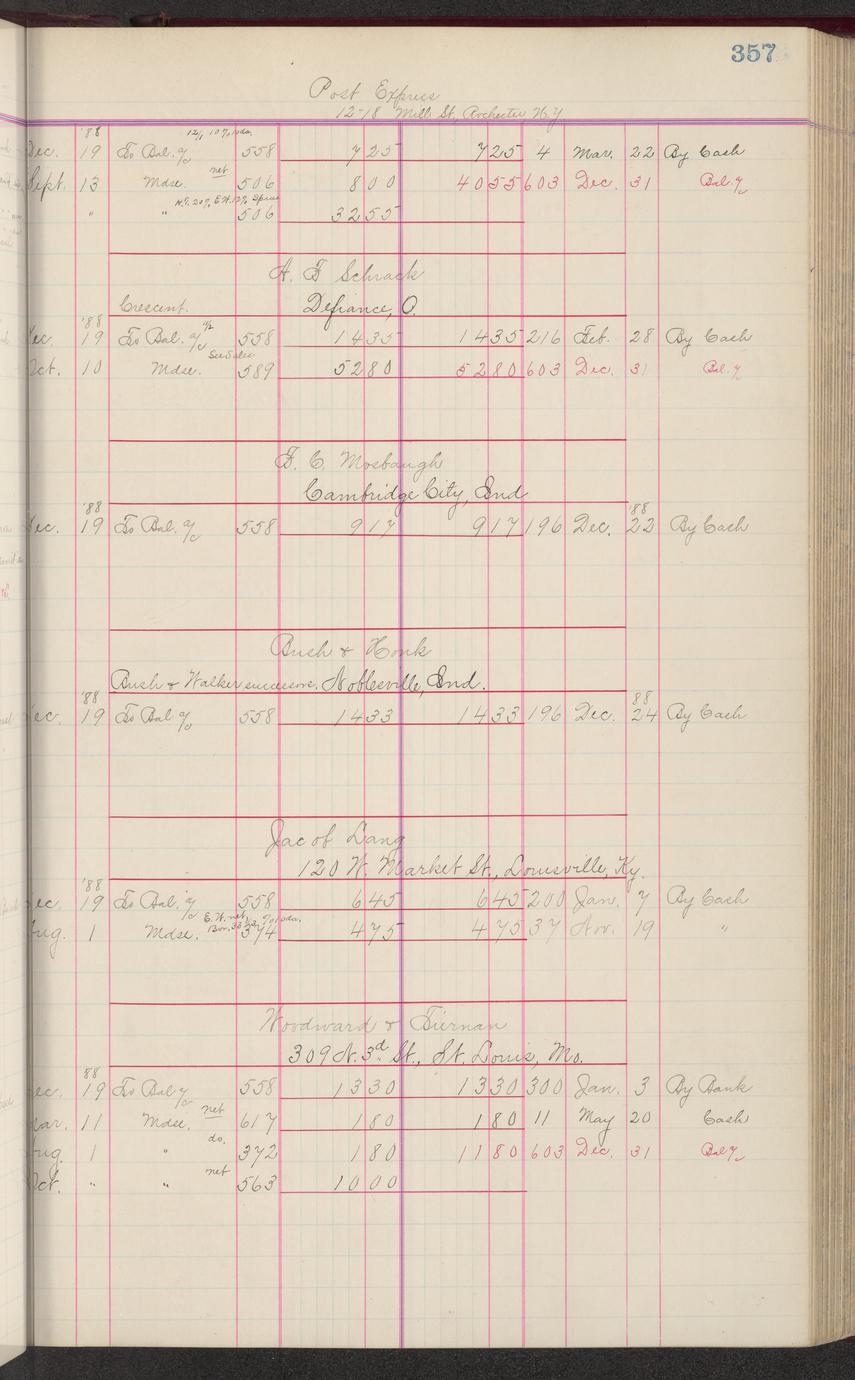 357
Post Express
12-18 Mill St., Rochester N.Y.
'88
Dec. 19 To Bal. a/c 558 725 725 4 Mar. 22 By Cash
net
Sept. 13 Mdse. 506 800 4055 603 Dec. 31 Bal. a/c
" " 506 3255
A. F. Schrack
Crescent. Defiance, O.
'88
Dec. 19 To Bal. a/c 558 1435 1435 216 Feb. 28 By Cash
Oct. 10 Mdse. 589 5280 5280 603 Dec. 31 Bal. a/c
F. C. Mosbaugh
Cambridge City, Ind
'88 '88
Dec. 19 To Bal. a/c 558 917 917 196 Dec. 22 By Cash
Bush & Honk
Bush & Walker successors. Noblesville, Ind.
'88 88
Dec. 19 To Bal a/c 558 1433 1433 196 Dec. 24 By Cash
Jacob Lang
120 W. Market St., Louisville, Ky.
'88
Dec. 19 To Bal. a/c 558 645 645 200 Jan. 7 By Cash
E. W. net,
Aug. 1 Mdse. 374 475 475 37 Nov. 19 "
Woodward & Tiernan
309 N. 3d St., St. Louis, Mo.
88
Dec. 19 To Bal a/c 558 1330 1330 300 Jan. 3 By Bank
Mar. 11 Mdse. net 617 180 180 11 May 20 Cash
do.
Aug. 1 " 372 180 1180 603 Dec. 31 Bal a/c
net
Oct. " " 563 1000